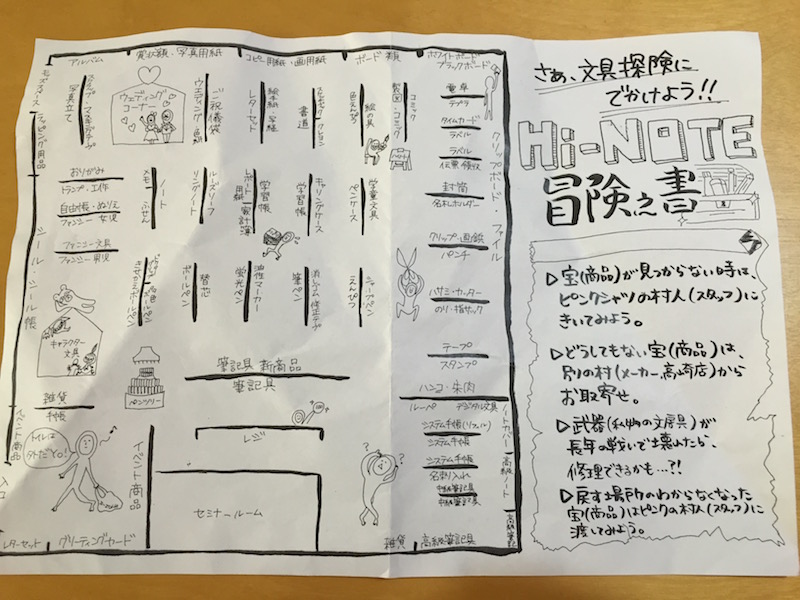 アルバム
賞状額・写真用紙
コピー用紙・画用紙
ボード類
ホワイトボード
ブラックボード
写真立て
ラッピング用品
ウェディング
コーナー
ウエディング
ご祝儀袋
レターセット
書道
色えんぴつ
絵の具
製図
コミック
電卓
テプラ
タイムカード
ラベル
ラベル
伝票・領収
封筒
名札ホルダー
クリップ・画鋲
パンチ
ハサミ・カッター
のり・指サック
テープ
スタンプ
ハンコ・朱肉
クリップボード・ファイル
おりがみ
トランプ・工作
自由帳・ぬりえ
ファンシー 女児
ファンシー文具
ファンシー男児
シール・シール帳
メモ・ふせん
ノート
リングノート
ルーズリーフ
レポート用紙
家計簿
学習帳
学習帳
キャリングケース
ペンケース
学童文具
ボールペン
替芯
蛍光ペン
油性マーカー
筆ペン
消しゴム 修正テープ
えんぴつ
シャープペン
キャラクター
文具
ペンツリー
筆記具 新商品
筆記具
雑貨
手帳
イベント商品
トイレは
外だYO!
入口
レターセット
グリーティングカード
イベント商品
レジ
セミナールーム
ルーペ
デジタル文具
システム手帳(リフィル)
システム手帳
システム手帳
名刺入れ
中級筆記具
中級筆記具
ノートカバー
高級ノート
高級筆記
雑貨
高級筆記具
さあ、文具探険に
でかけよう!!
Hi-NOTE
冒険之書
▷宝(商品)が見つからない時は、
ピンクシャツの村人(スタッフ)に
きいてみよう。
▷どうしてもない宝(商品)は、
別の村(メーカー、高崎店)から
お取寄せ。
▷武器(私物の文房具)が
長年の戦いで壊れたら、
修理できるかも…?!
▷戻す場所のわからなくなった
宝(商品)はピンクの村人(スタッフ)に
渡してみよう。